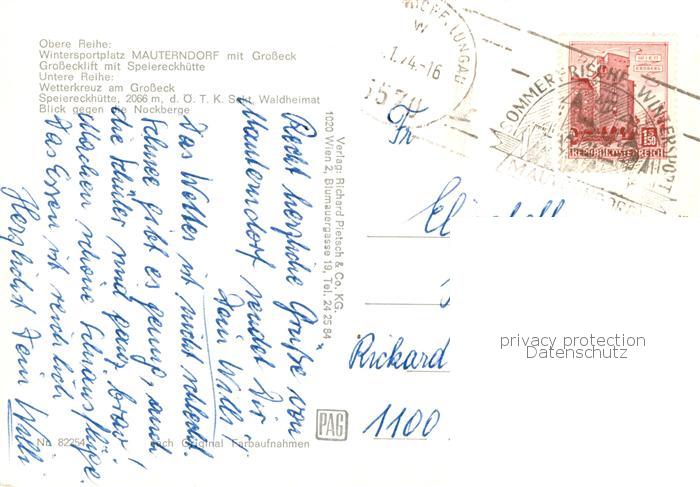 Obere Reihe:
Wintersportplatz MAUTERNDORF mit Großeck
Großecklift mit Speiereckhütte
Untere Reihe:
Wetterkreuz am Großeck
Speiereckhütte, 2066 m, d. Ö. T. K. Sekt. Waldheimat
Blick gegen die Nockberge
Recht herzliche Grüße von
Mauterndorf sendet Dir
Dein Willi!
Das Wetter ist nicht schlecht.
Schnee gibt es genug, auch
die Schüler sind ganz brav!
Machen schöne Skiausflüge.
Das Essen ist reichlich
Herzlichst Dein Willi
No 82254
Nach Original Farbaufnahmen
Verlag: Richard Pietsch & Co. KG.
1020 Wien 2, Blumauergasse 19, Tel. 24 25 84
PAG
LUNGAU
1.74.-16
5570
SOMMERFRISCHE WINTERSPORT
WIEN
ERDBERG
1.50
REPUBLIK ÖSTERREICH
Fr
Rickard
1100
privacy protection
Datenschutz